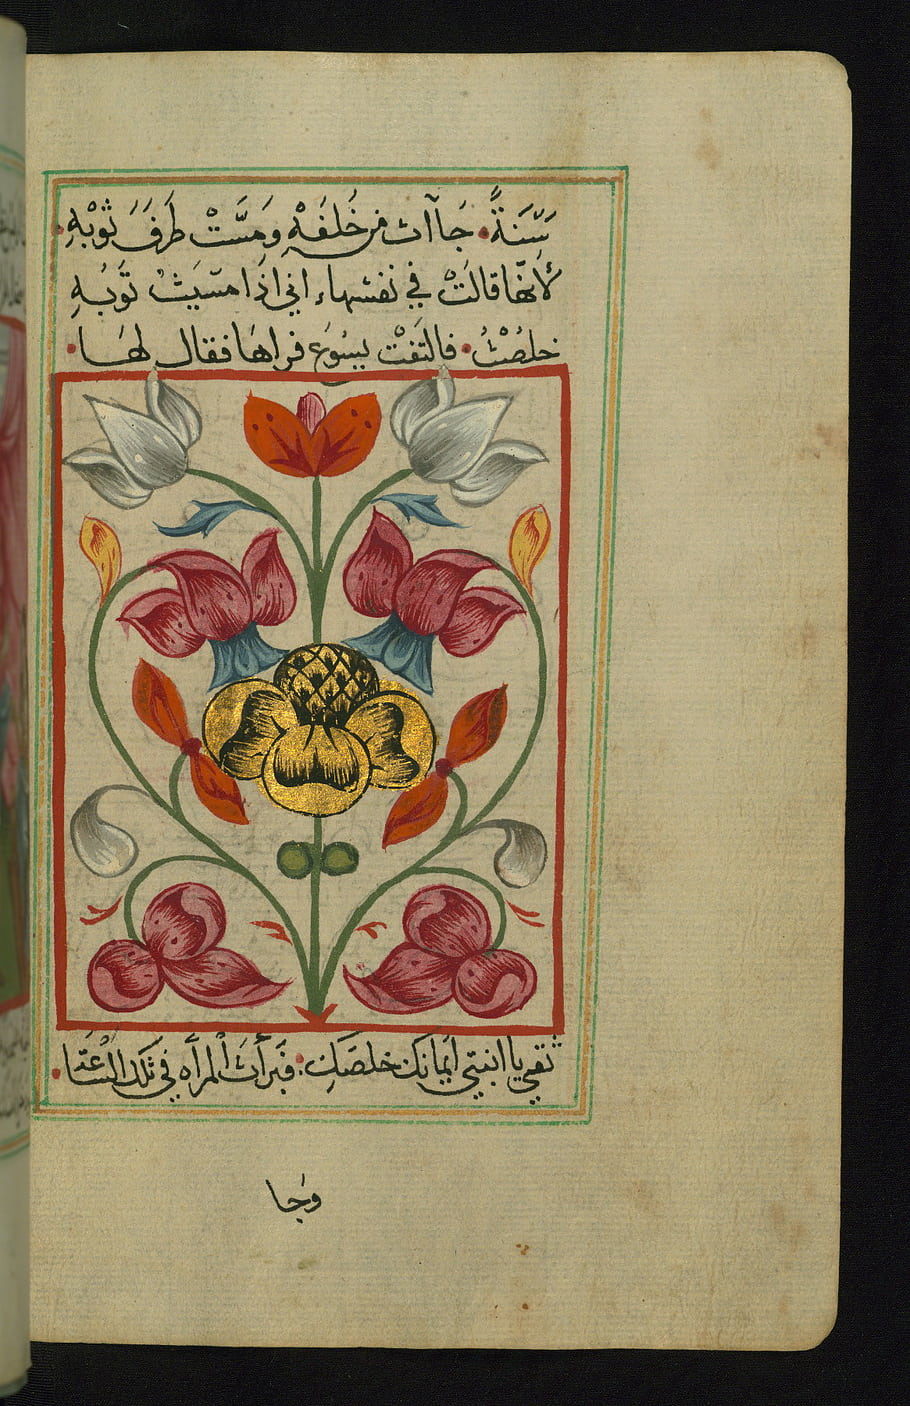 سَنَةً. جَاآت من خَلفَهْ وَمَسَّتْ طَرَفَ ثوْبْهِ.
لأنّهَا قالَتْ في نفسْهاء اني اذَا مسّيتْ ثوَبُهِ
خلصْتُ. فالتَفتْ يسُوَع فراهَا فقال لهَا.
ثقي يا ابنتي ايمانك خلصَكِ. فبَرأت المرأَه في تلك السّاعَة.
وجَا